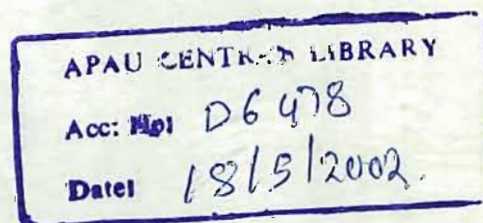 APAU CENTRAL LIBRARY
Acc: No: D6478
Date: 18/5/2002.